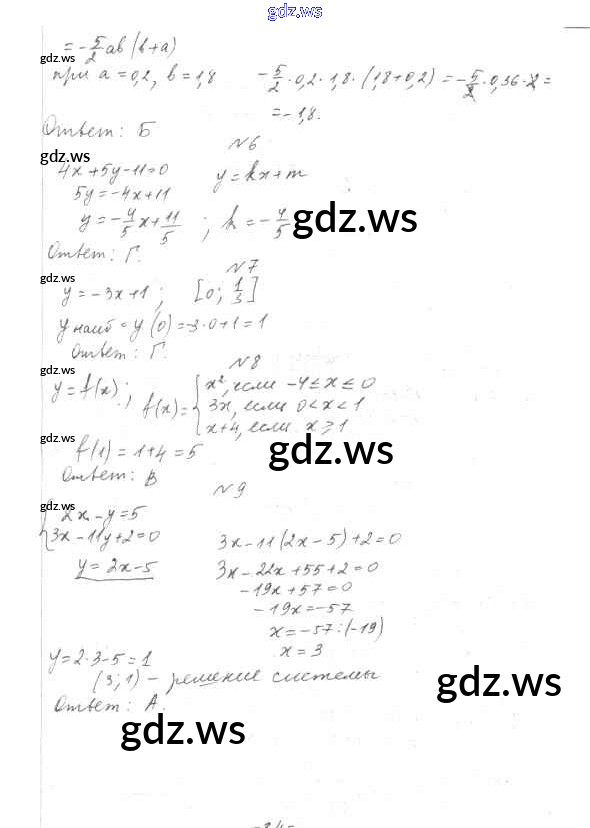 gdz.ws
= -5/2 ab (b+a)
gdz.ws
при a = 0,2, b = 1,8    -5/2 · 0,2 · 1,8 · (1,8+0,2) = -5/2 · 0,36 · 2 =
= -1,8.
Ответ: Б
gdz.ws
№6
4x+5y-11=0    y=kx+m
5y=-4x+11
y=-4/5x+11/5 ; k=-4/5
gdz.ws
Ответ: Г.
№7
gdz.ws
y=-3x+1 ; [0; 1/3]
y наиб = y(0) = -3·0+1=1
Ответ: Г.
№8
gdz.ws
y=f(x); f(x)= { x², если -4≤x≤0
3x, если 0<x<1
x+4, если x≥1
gdz.ws
f(1)=1+4=5
gdz.ws
Ответ: В
№9
gdz.ws
{ 2x-y=5
3x-11y+2=0    3x-11(2x-5)+2=0
y=2x-5    3x-22x+55+2=0
-19x+57=0
-19x=-57
x=-57:(-19)
x=3
y=2·3-5=1
(3;1) - решение системы
gdz.ws
Ответ: А.
gdz.ws